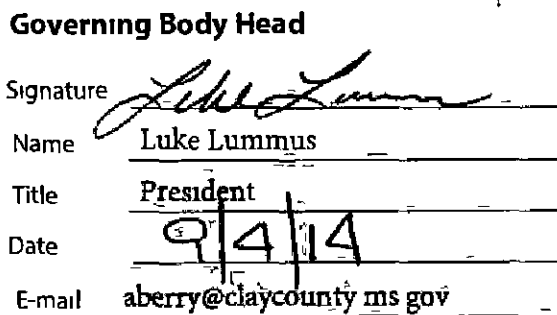 Governing Body Head
Signature Luke Lummus
Name Luke Lummus
Title President
Date 9/4/14
E-mail aberry@claycounty ms gov